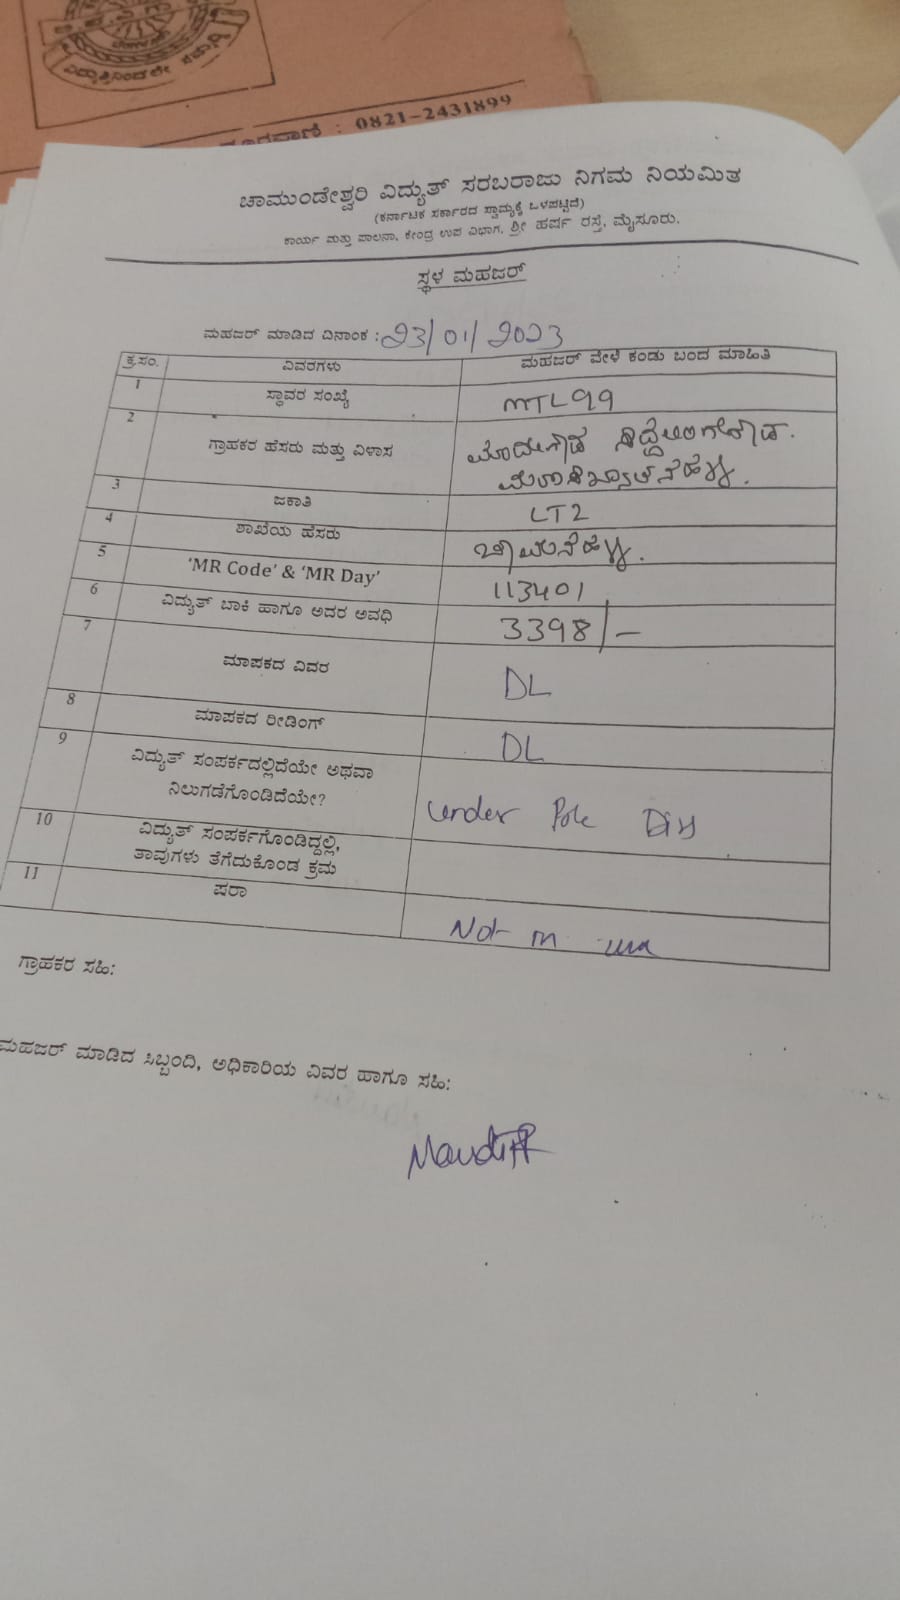 ವಿದ್ಯುತ್ತಿನಿಂದಲೇ
ದೂರವಾಣಿ : 0821-2431899
ಚಾಮುಂಡೇಶ್ವರಿ ವಿದ್ಯುತ್ ಸರಬರಾಜು ನಿಗಮ ನಿಯಮಿತ
(ಕರ್ನಾಟಕ ಸರ್ಕಾರದ ಸ್ವಾಮ್ಯಕ್ಕೆ ಒಳಪಟ್ಟಿದೆ)
ಕಾರ್ಯ ಮತ್ತು ಪಾಲನಾ, ಕೇಂದ್ರ ಉಪ ವಿಭಾಗ, ಶ್ರೀ ಹರ್ಷ ರಸ್ತೆ, ಮೈಸೂರು.
ಸ್ಥಳ ಮಹಜರ್
ಮಹಜರ್ ಮಾಡಿದ ದಿನಾಂಕ : 23/01/2023
ಕ್ರ.ಸಂ. ವಿವರಗಳು ಮಹಜರ್ ವೇಳೆ ಕಂಡು ಬಂದ ಮಾಹಿತಿ
1 ಸ್ಥಾವರ ಸಂಖ್ಯೆ MTL99
2 ಗ್ರಾಹಕರ ಹೆಸರು ಮತ್ತು ವಿಳಾಸ
3 ಜಕಾತಿ LT2
4 ಶಾಖೆಯ ಹೆಸರು
5 'MR Code' & 'MR Day' 113401
6 ವಿದ್ಯುತ್ ಬಾಕಿ ಹಾಗೂ ಅದರ ಅವಧಿ 3398/-
7 ಮಾಪಕದ ವಿವರ DL
8 ಮಾಪಕದ ರೀಡಿಂಗ್ DL
9 ವಿದ್ಯುತ್ ಸಂಪರ್ಕದಲ್ಲಿದೆಯೇ ಅಥವಾ
ನಿಲುಗಡೆಗೊಂಡಿದೆಯೇ? under Pole Diss
10 ವಿದ್ಯುತ್ ಸಂಪರ್ಕಗೊಂಡಿದ್ದಲ್ಲಿ,
ತಾವುಗಳು ತೆಗೆದುಕೊಂಡ ಕ್ರಮ
11 ಷರಾ Not in use
ಗ್ರಾಹಕರ ಸಹಿ:
ಮಹಜರ್ ಮಾಡಿದ ಸಿಬ್ಬಂದಿ, ಅಧಿಕಾರಿಯ ವಿವರ ಹಾಗೂ ಸಹಿ: